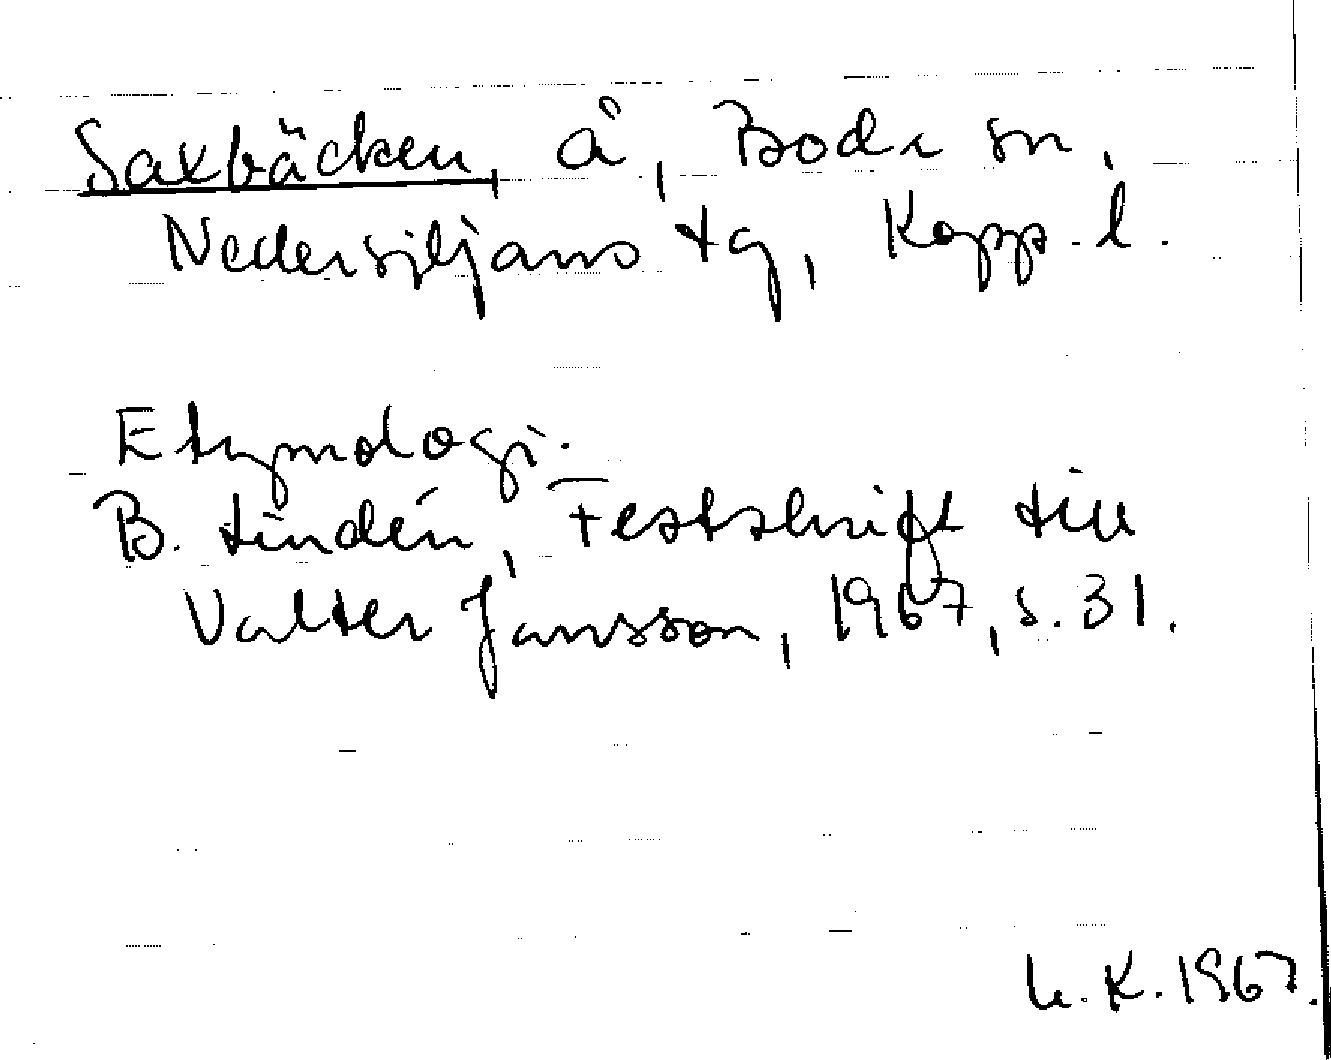 Saxbäcken, å, Boda sn,
Nedersiljans tg, Kopp. l.
Etymologi.
B. Lindén, Festskrift till
Valter Jansson, 1967, s. 31.
L. K. 1967.